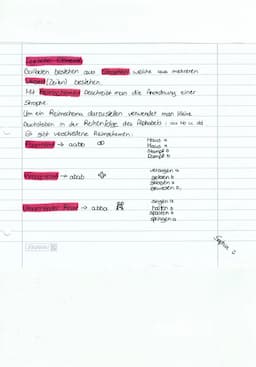 Gedichte bestehen aus Strophen, welche aus mehreren
Versen (Zeilen) bestehen.
Mit Reimschema beschreibt man die Anordnung einer
Strophe.
Um ein Reimschema darzustellen verwendet man kleine
Buchstaben in der Reihenfolge des Alphabets: aa bb cc dd
Es gibt verschiedene Reimschemen:
Paarreim → aabb
Haus a
Maus a
Stumpf b
Dumpf b
Kreuzreim → abab
geben b
Umarmender Reim → abba
singen a
halten b
springen a
Sophia